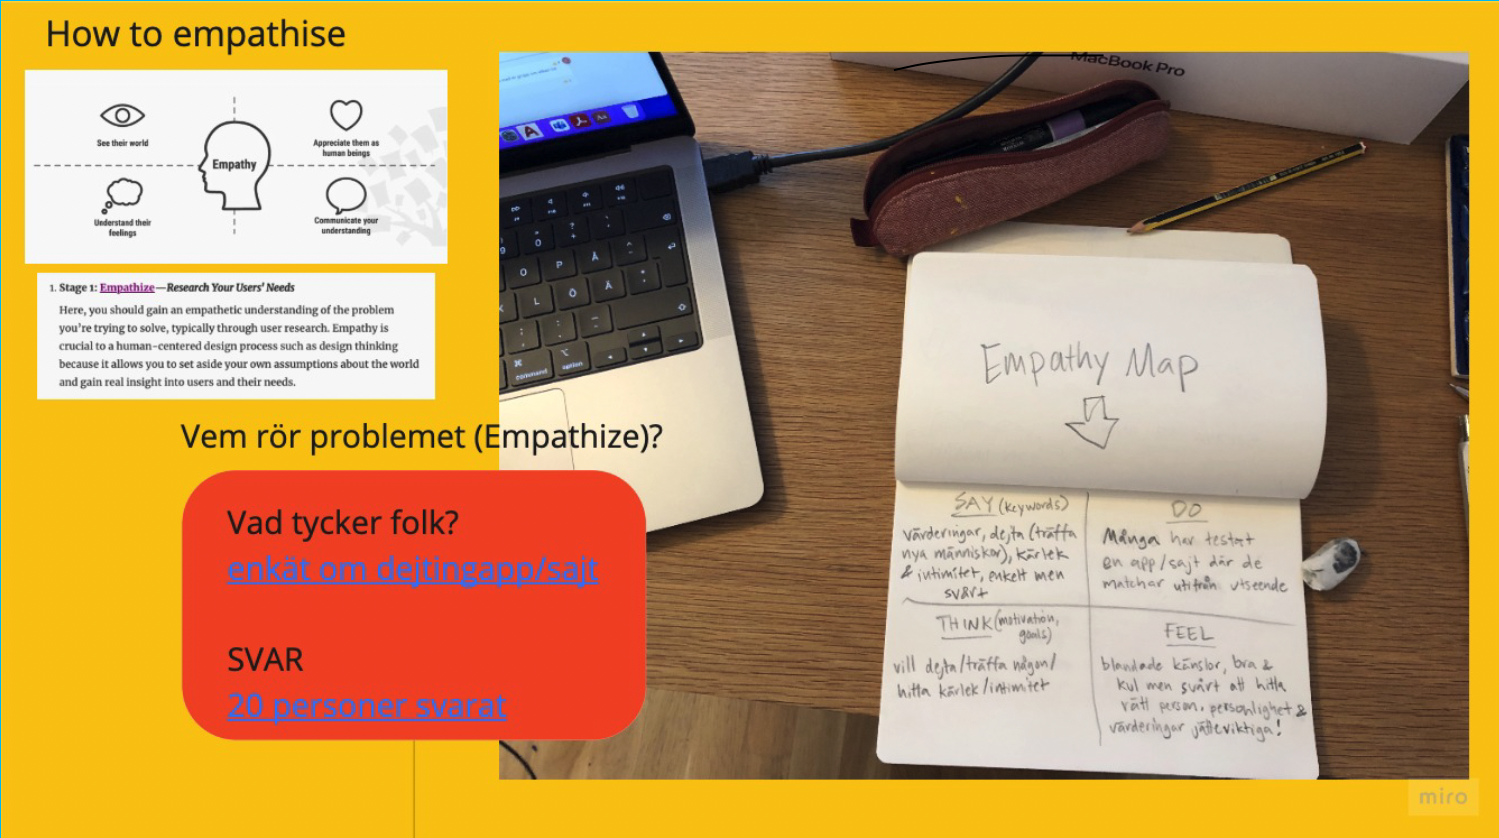 How to empathise
See their world
Appreciate them as
human beings
Empathy
Understand their
feelings
Communicate your
understanding
1. Stage 1: Empathize—Research Your Users' Needs
Here, you should gain an empathetic understanding of the problem
you're trying to solve, typically through user research. Empathy is
crucial to a human-centered design process such as design thinking
because it allows you to set aside your own assumptions about the world
and gain real insight into users and their needs.
Vem rör problemet (Empathize)?
Vad tycker folk?
enkät om dejtingapp/sajt
SVAR
20 personer svarat
MacBook Pro
O P Å
L Ö Ä
command
option
Empathy Map
SAY (keywords)
värderingar, dejta (träffa
nya människor), kärlek
& intimitet, enkelt men
svårt
DO
Många har testat
en app/sajt där de
matchar utifrån utseende
THINK (motivation,
goals)
vill dejta/träffa någon/
hitta kärlek/intimitet
FEEL
blandade känslor, bra &
kul men svårt att hitta
rätt person, personlighet &
värderingar jätteviktiga!
miro